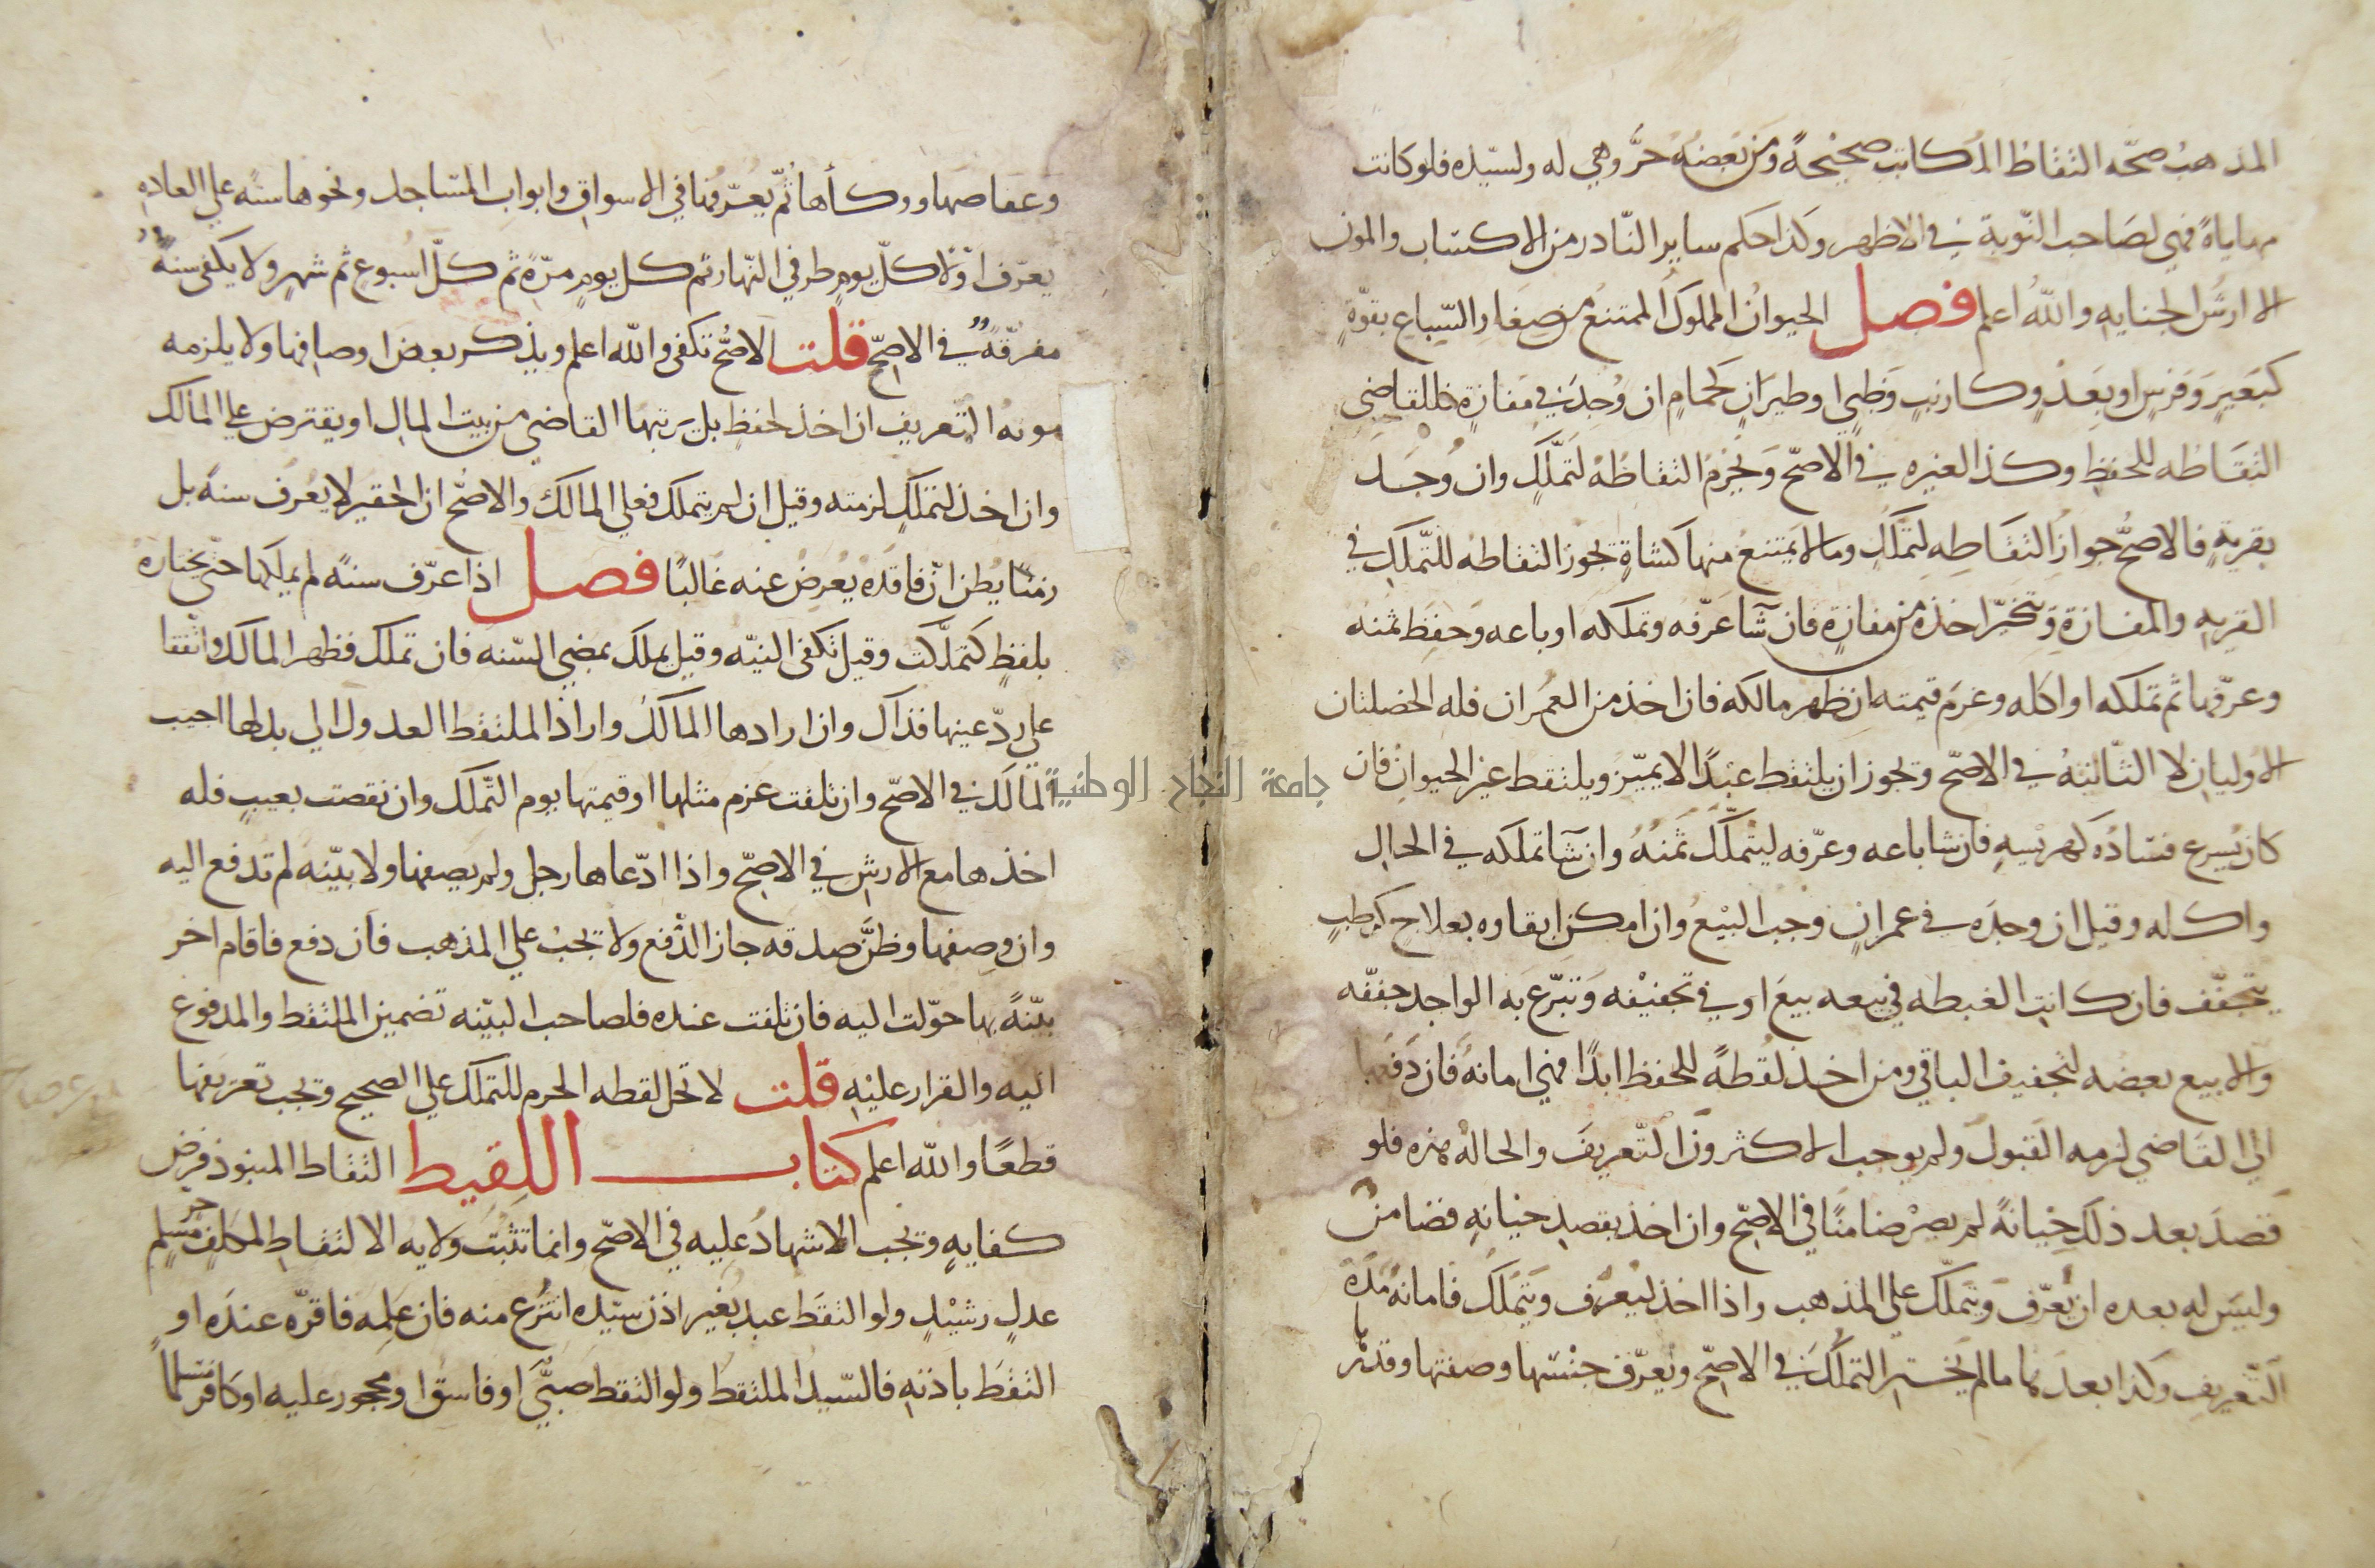 المذهب صحه التقاط المكاتب صحيحة ومن بعضه حر وهي له ولسيده فلو كانت
مهاياة فهي لصاحب النوبة في الاظهر وكذا حكم ساير النادر من الاكتساب والمون
الا ارش الجنايه والله اعلم فصل الحيوان المملوك الممتنع من صغار السباع بقوة
كبعير وفرس او بعدو كارنب وظبي او طيران كحمام ان وجد في مفازة فللقاضي
التقاطه للحفظ وكذا لغيره في الاصح ويحرم التقاطه لتملك وان وجد
بقرية فالاصح جواز التقاطه لتملك وما لا يمتنع منها كشاة يجوز التقاطه للتملك في
القريه والمفازة ويتخير اخذه من مفازة فان شآ عرفه وتملكه او باعه وحفظ ثمنه
وعرفها ثم تملكه او اكله وغرم قيمته ان ظهر مالكه فان اخذ من العمران فله الخصلتان
الاوليان لا الثالثة في الاصح ويجوز ان يلتقط عبدًا لا يميز ويلتقط غير الحيوان فان
كان يسرع فساده كهريسه فان شا باعه وعرفه ليتملك ثمنه وان شآ تملكه في الحال
واكله وقيل ان وجده في عمران وجب البيع وان امكن ابقاوه بعلاج كرطب
يتجفف فان كانت الغبطه في بيعه بيع او في تجفيفه وتبرع به الواجد جففه
والا بيع بعضه لتجفيف الباقي ومن اخذ لقطة للحفظ ابدًا فهي امانة فان دفعها
الى القاضي لزمه القبول ولم يوجب الاكثرون التعريف والحالة هذه فلو
قصد بعد ذلك خيانةً لم يصر ضامنًا في الاصح وان اخذ بقصد خيانه فضامن
وليس له بعده ان يعرف ويتملك على المذهب واذا اخذ ليعرف ويتملك فامانة مدة
التعريف وكذا بعدها ما لم يختر التملك في الاصح ويعرف جنسها وصفتها وقدرها
وعفاصها ووكأها ثم يعرفها في الاسواق وابواب المساجد ونحوها سنه على العاده
يعرف اولا كل يوم طرفي النهار ثم كل يوم مرة ثم كل اسبوع ثم شهر ولا يكفي سنةٌ
مفرقة في الاصح قلت الاصح تكفى والله اعلم ويذكر بعض اوصافها ولا يلزمه
مونه التعريف ان اخذ لحفظ بل يرتبها القاضي من بيت المال او يقترض على المالك
وان اخذ لتملك لزمته وقيل ان لم يتملك فعلى المالك والاصح ان الحقير لا يعرف سنة بل
زمنًا يظن ان فاقده يعرض عنه غالبًا فصل اذا عرف سنةً لم يملكها حتى يختاره
بلفظ كتملكت وقيل تكفى النيه وقيل يملك بمضي السنه فان تملك فظهر المالك واتفقا
على رد عينها فذاك وان ارادها المالك واراد الملتقط العدول الى بدلها اجيب
المالك في الاصح وان تلفت غرم مثلها او قيمتها يوم التملك وان نقصت بعيب فله
اخذها مع الارش في الاصح واذا ادعاها رجل ولم يصفها ولا بينه لم تدفع اليه
وان وصفها وظن صدقه جاز الدفع ولا يجب على المذهب فان دفع فاقام اخر
بينةً بها حولت اليه فان تلفت عنده فلصاحب البينه تضمين الملتقط والمدفوع
اليه والقرار عليه قلت لا تحل لقطه الحرم للتملك على الصحيح ويجب تعريفها
قطعًا والله اعلم كتاب اللقيط التقاط المنبوذ فرض
كفايه ويجب الاشهاد عليه في الاصح وانما تثبت ولايه الالتقاط لمكلف حر مسلم
عدل رشيد ولو التقط عبد بغير اذن سيده انتزع منه فان علمه فاقره عنده او
التقط باذنه فالسيد الملتقط ولو التقط صبي او فاسق او محجور عليه او كافر مسلمًا
جامعة النجاح الوطنية